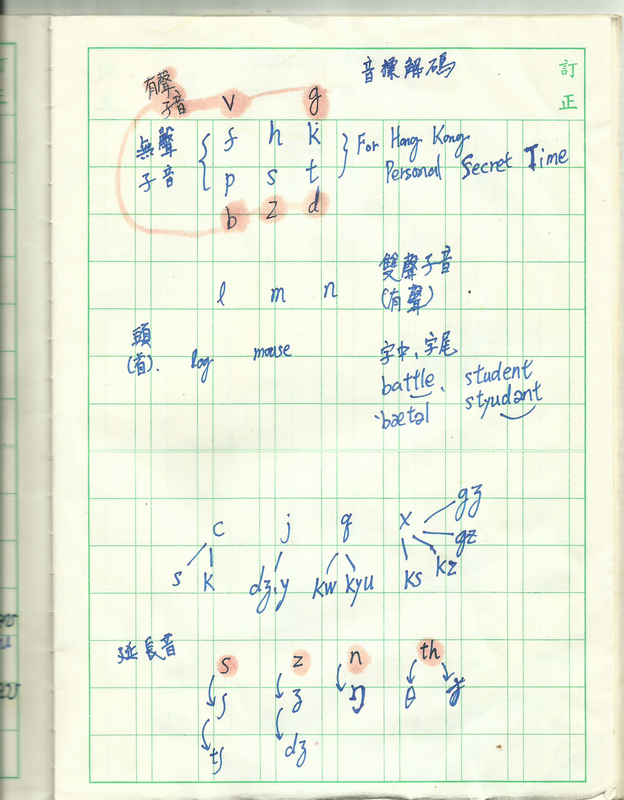 訂正
音標解碼
有聲子音 v g
無聲子音 { f h k } For Hong Kong
p s t Personal Secret Time
b z d
雙聲子音
l m n (有聲)
頭(首). log mouse 字中、字尾
battle、 student
ˋbætəl styudənt
c j q x gʒ
gz
s k dʒ,y kw kyu ks kz
延長音 s z n th
ʃ ʒ ŋ θ ð
tʃ dʒ